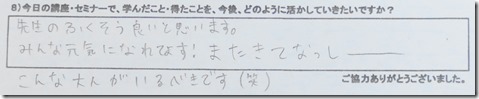 8）今日の講座・セミナーで、学んだこと・得たことを、今後、どのように活かしていきたいですか？
先生のふくそう良いと思います。
みんな元気になれてます！またきてなっしー
こんな大人がいるべきです（笑）
ご協力ありがとうございました。